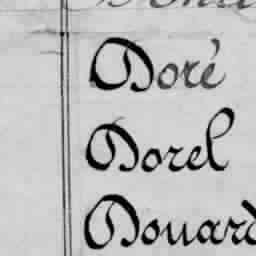 Doré
Dorel
Douard